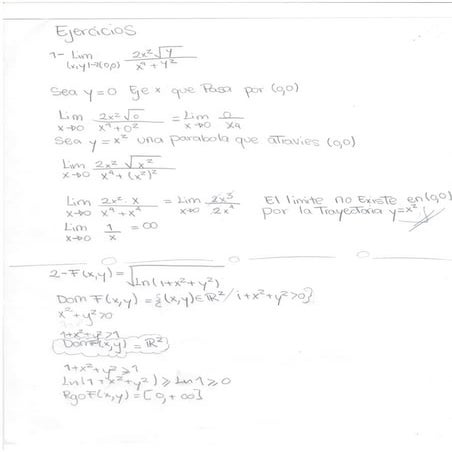 Ejercicios
1- Lim 2x²√y
(x,y)→(0,0) x⁴ + y²
Sea y=0 Eje x que Pasa por (0,0)
Lim 2x²√0 = Lim 0
x→0 x⁴+0² x→0 x4
Sea y = x² una parabola que atravies (0,0)
Lim 2x² √x²
x→0 x⁴ + (x²)²
Lim 2x². x = Lim 2x³ El limite no Existe en (0,0)
x→0 x⁴ + x⁴ x→0 2x⁴ por la Trayectoria y=x²
Lim 1 = ∞
x→0 x
2- F(x,y) = √Ln(1+x²+y²)
Dom F(x,y) = {(x,y)∈ℝ²/ 1+x²+y²>0}
x²+y²≥0
1+x²+y²≥1
Dom F(x,y) = ℝ²
1+x²+y²≥1
Ln(1+x²+y²) ≥ Ln 1 ≥ 0
Rgo F(x,y) = [0,+∞]